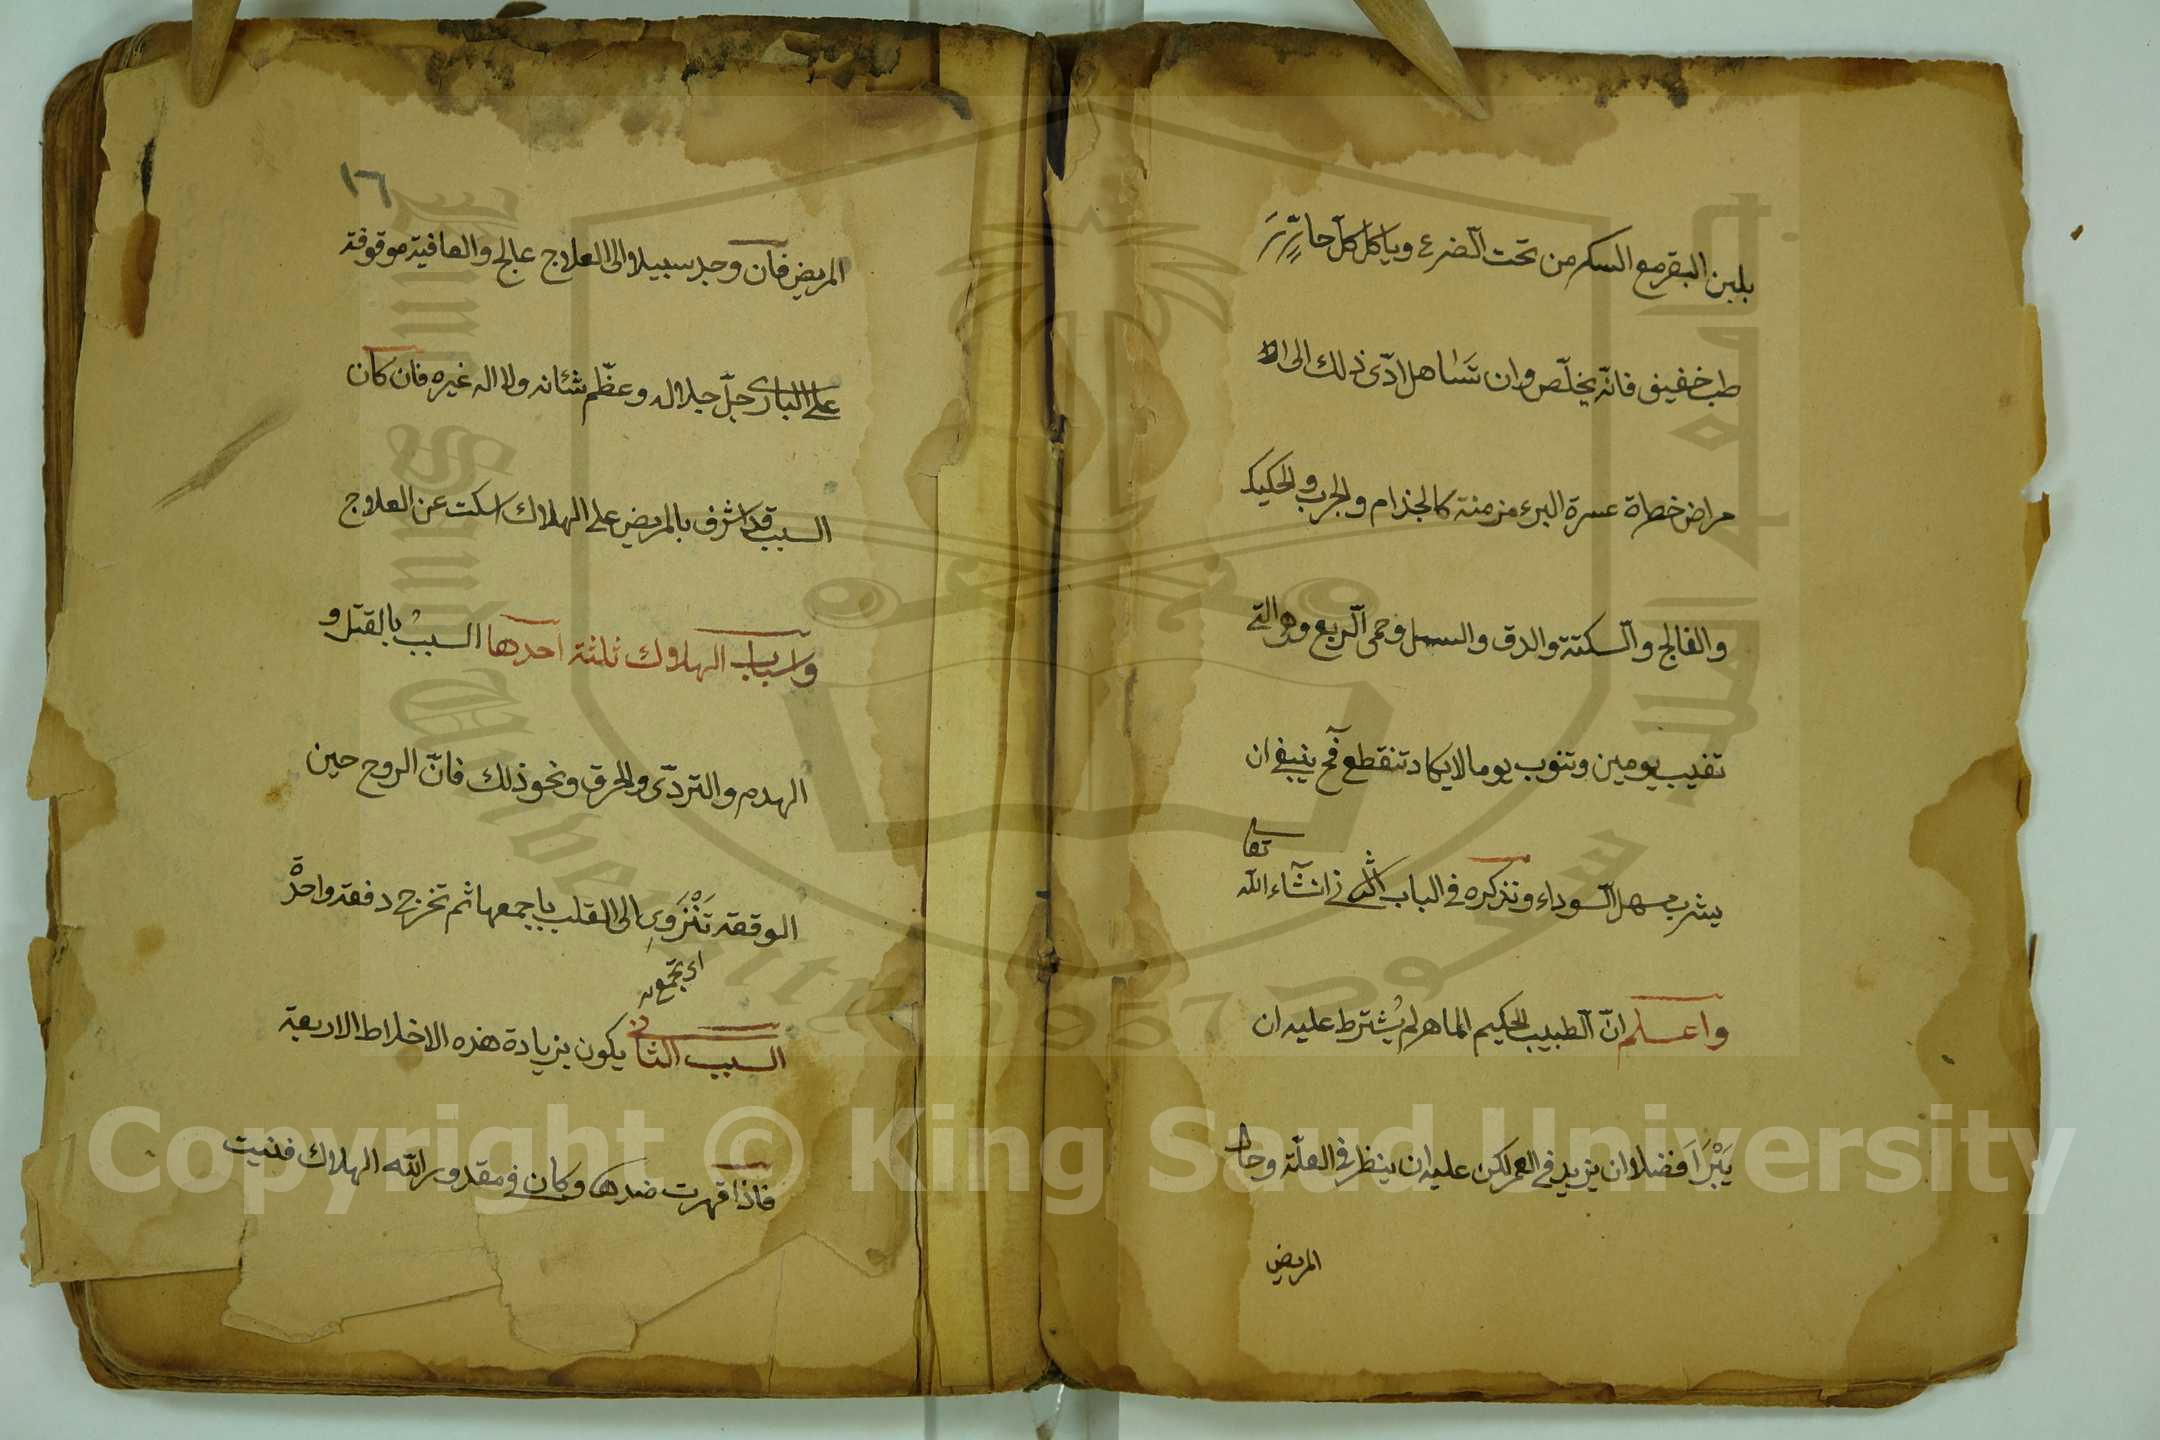 بلبن البقر مع السكر من تحت الضرع وياكل كل حار
طب خفيف فانه يخلص وان تساهل ادّى ذلك الى الا
مراض خطاة عسرة البرء مزمنة كالجذام والجرب والحكيك
والفالج والسكتة والدق والسل وحمى الربع وهى التى
تغيب يومين وتنوب يوما لا يكاد تنقطع فح ينبغى ان
يشرب مسهل السوداء ونذكره فى الباب الثانى انشاء الله
تعالى
واعلم انّ الطبيب الحكيم الماهر لم يُشترط عليه ان
يَبْرَأ فضلا ان يزيد فى العمر لكن عليه ان ينظر فى العلّة وحال
المريض
١٦
المريض فان وجد سبيلا الى العلاج عالج والعافية موقوفة
على البارى جلّ جلاله وعظّم شئانه ولا اله غيره فان كان
السبب قد اشرف بالمريض على الهلاك اسكت عن العلاج
واسباب الهلاك ثلثة احدها السبب بالقتل و
الهدم والتردّى والحرق ونحو ذلك فانّ الروح حين
الوقفة تَنْزَوِى الى القلب باجمعها ثم تخرج دفعة واحدة
اى تجمع
السبب الثانى يكون بزيادة هذه الاخلاط الاربعة
فاذا قهرت ضدها وكان فى مقدور الله الهلاك فنيت
Copyright © King Saud University
King Saud University
1957
جامعة الملك سعود